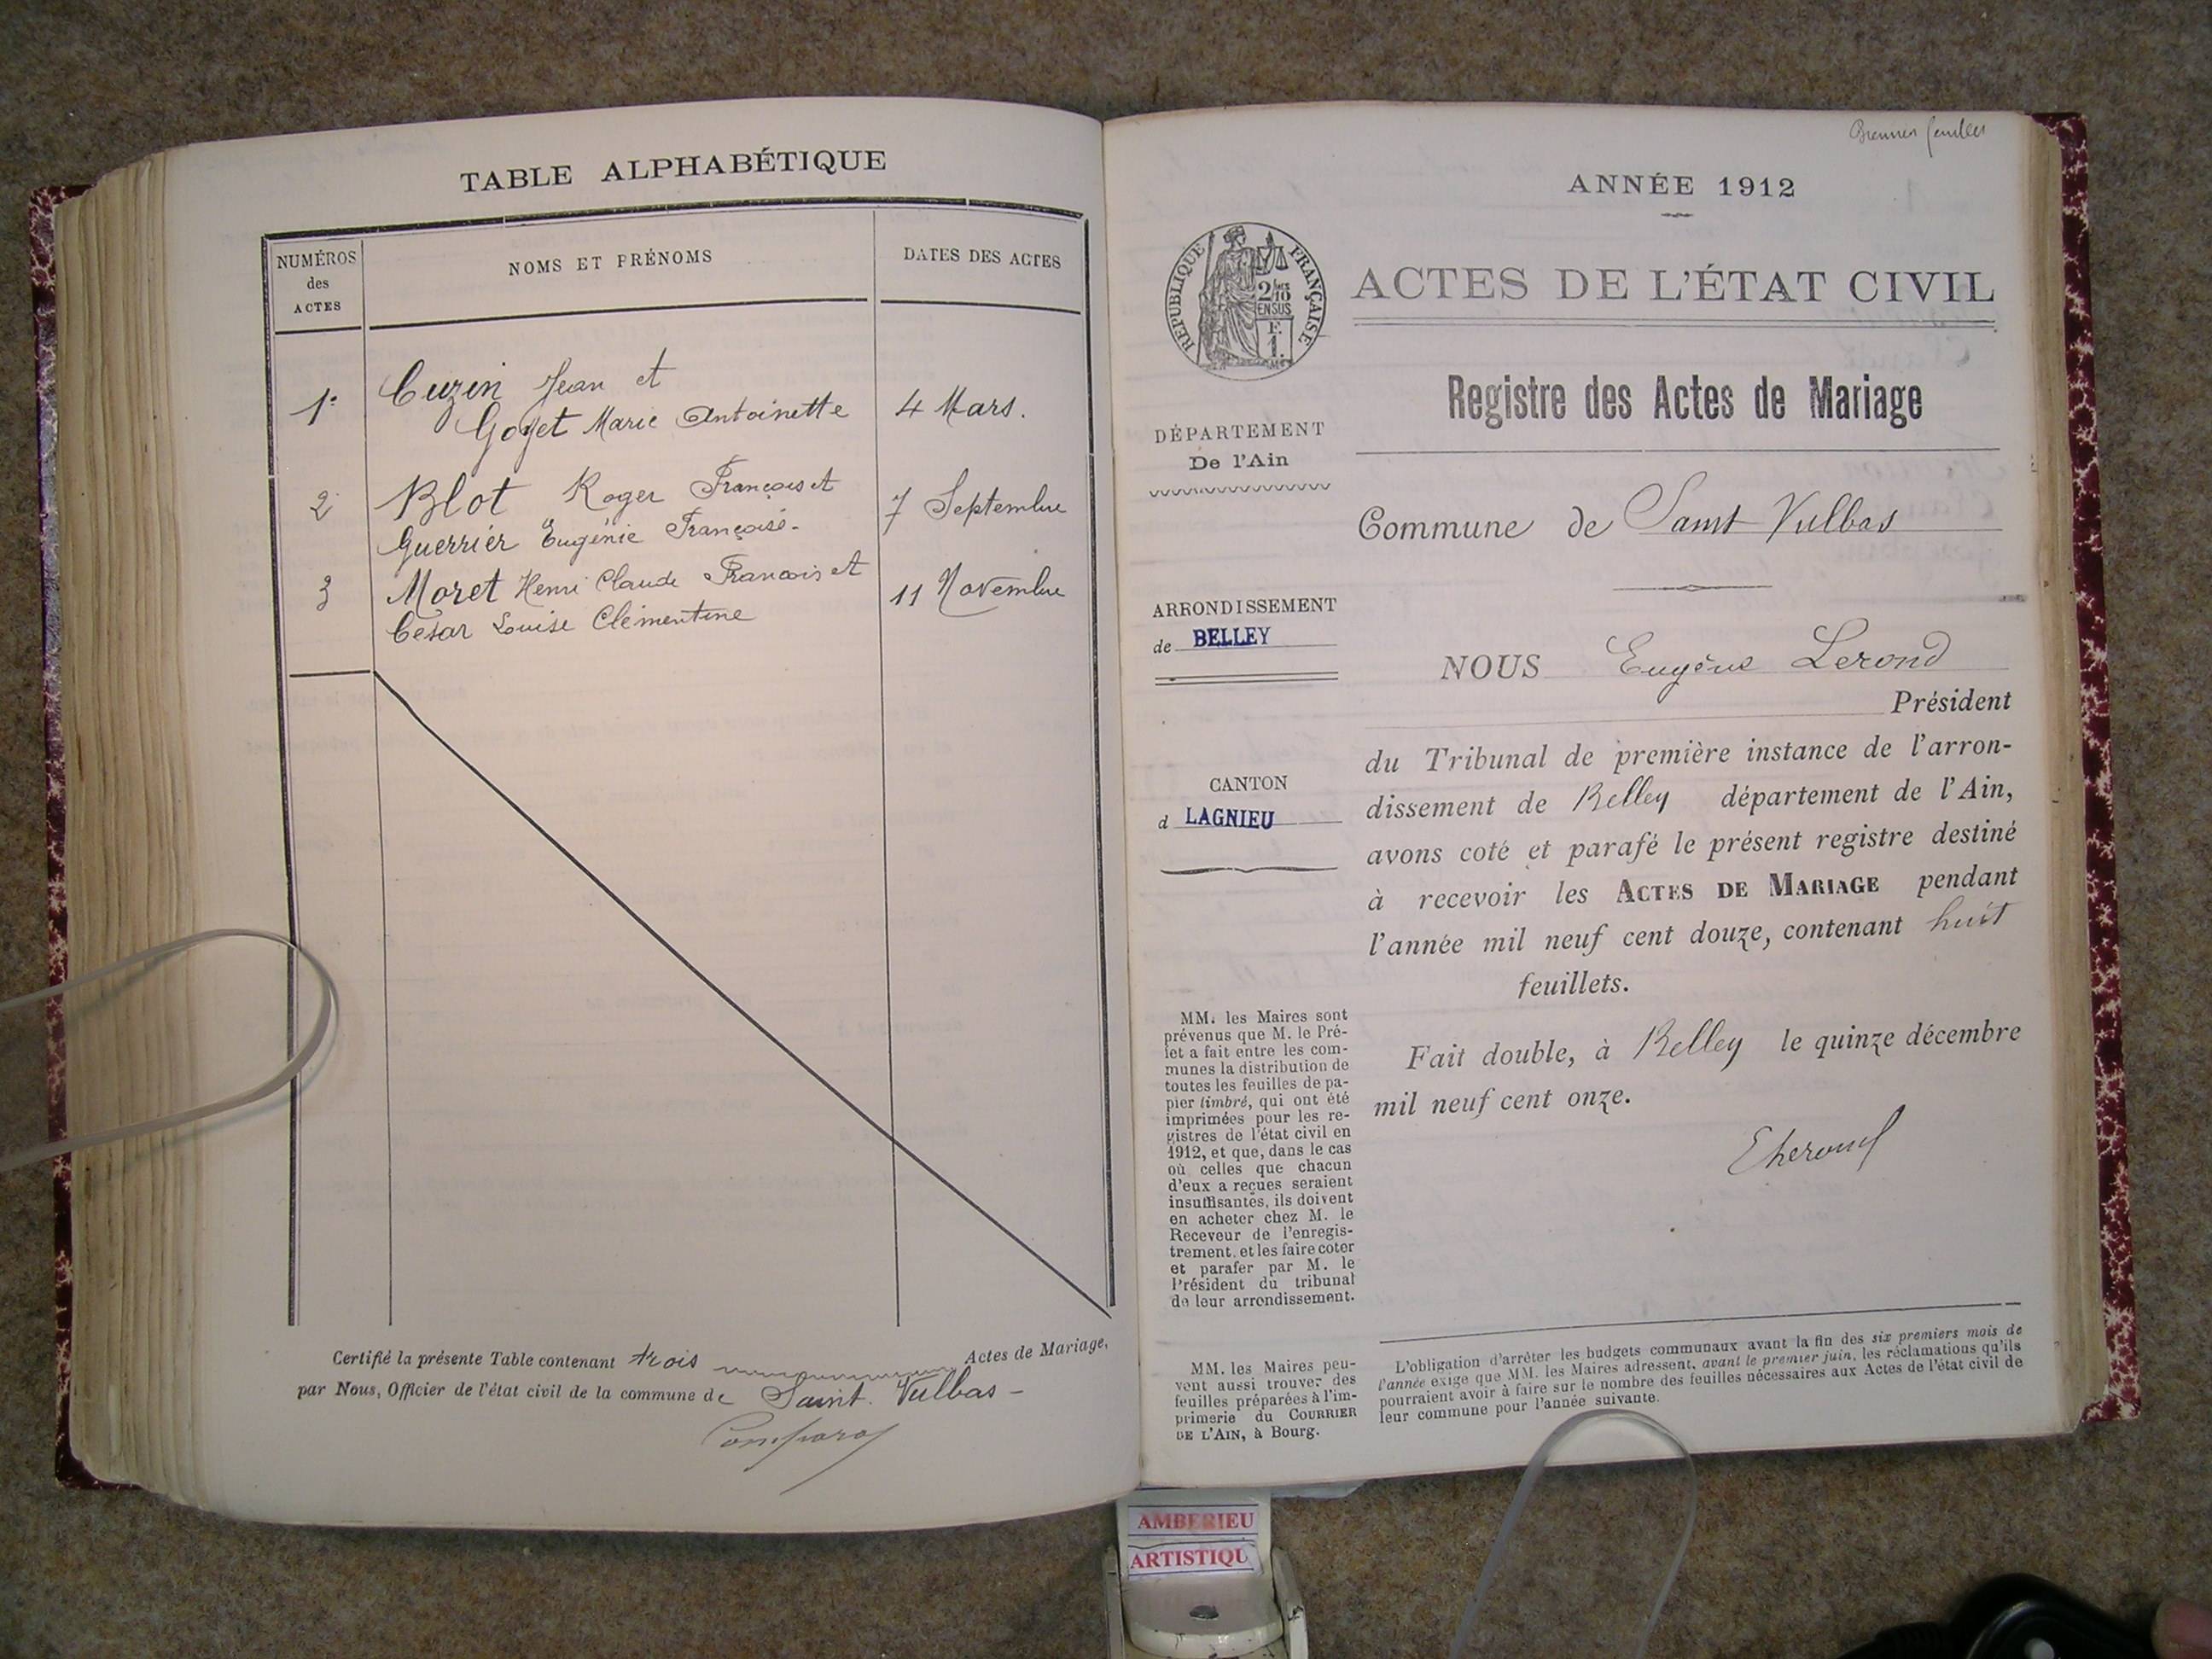 TABLE ALPHABÉTIQUE
NUMÉROS
des
ACTES
NOMS ET PRÉNOMS
DATES DES ACTES
1° Cuzin Jean et
Goyet Marie Antoinette 4 Mars.
2 Blot Roger François et
Guerrier Eugénie Françoise- 7 Septembre
3 Moret Henri Claude François et
César Louise Clémentine 11 Novembre
Certifié la présente Table contenant trois Actes de Mariage,
par Nous, Officier de l'état civil de la commune de Saint. Vulbas -
Premier feuillet
ANNÉE 1912
RÉPUBLIQUE FRANÇAISE
2/10
EN SUS
F.
1.
ACTES DE L'ÉTAT CIVIL
Registre des Actes de Mariage
DÉPARTEMENT
De l'Ain
Commune de Saint Vulbas
ARRONDISSEMENT
de BELLEY
CANTON
d LAGNIEU
NOUS Eugène Lerond
Président
du Tribunal de première instance de l'arron-
dissement de Belley département de l'Ain,
avons coté et parafé le présent registre destiné
à recevoir les ACTES DE MARIAGE pendant
l'année mil neuf cent douze, contenant huit
feuillets.
Fait double, à Belley le quinze décembre
mil neuf cent onze.
ELerond
MM. les Maires sont
prévenus que M. le Pré-
fet a fait entre les com-
munes la distribution de
toutes les feuilles de pa-
pier timbré, qui ont été
imprimées pour les re-
gistres de l'état civil en
1912, et que, dans le cas
où celles que chacun
d'eux a reçues seraient
insuffisantes, ils doivent
en acheter chez M. le
Receveur de l'enregis-
trement, et les faire coter
et parafer par M. le
Président du tribunal
de leur arrondissement.
MM. les Maires peu-
vent aussi trouver des
feuilles préparées à l'im-
primerie du COURRIER
DE L'AIN, à Bourg.
L'obligation d'arrêter les budgets communaux avant la fin des six premiers mois de
l'année exige que MM. les Maires adressent, avant le premier juin, les réclamations qu'ils
pourraient avoir à faire sur le nombre des feuilles nécessaires aux Actes de l'état civil de
leur commune pour l'année suivante.
AMBERIEU
ARTISTIQU